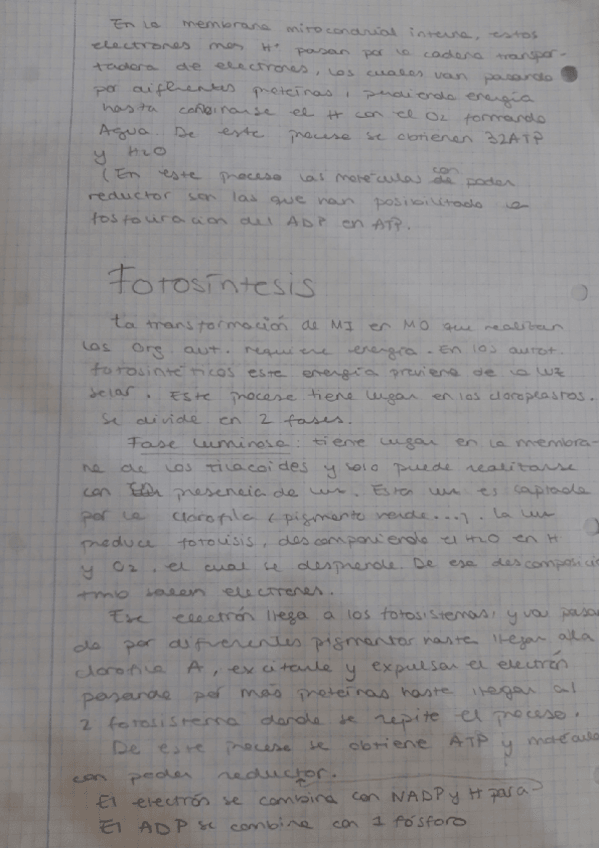 En la membrana mitocondrial interna, estos
electrones mas H⁺ pasan por la cadena transpor-
tadora de electrones, los cuales van pasando
por diferentes proteínas, perdiendo energía
hasta combinarse el H con el O2 formando
Agua. De este proceso se obtienen 32ATP
y H2O
(En este proceso las moléculas con de poder
reductor son las que han posibilitado la
fosfouración del ADP en ATP.
Fotosíntesis
La transformación de MI en MO que realizan
los Org. aut. requiere energía. En los autot.
fotosintéticos este energía proviene de la luz
solar. Este proceso tiene lugar en los cloroplastos.
Se divide en 2 fases.
Fase luminosa: tiene lugar en la membra-
na de los tilacoides y solo puede realizarse
con presencia de luz. Esta luz es captada
por la clorofila (pigmento verde...). La luz
produce fotolisis, descomponiendo el H2O en H
y O2, el cual se desprende. De esa descomposición
tmb salen electrones.
Ese electrón llega a los fotosistemas, y va pasan
do por diferentes pigmentos hasta llegar a la
clorofila A, excitarla y expulsar el electrón
pasando por más proteínas hasta llegar al
2 fotosistema donde se repite el proceso.
De este proceso se obtiene ATP y molécula
con poder reductor.
El electrón se combina con NADP y H para
El ADP se combina con 1 fósforo